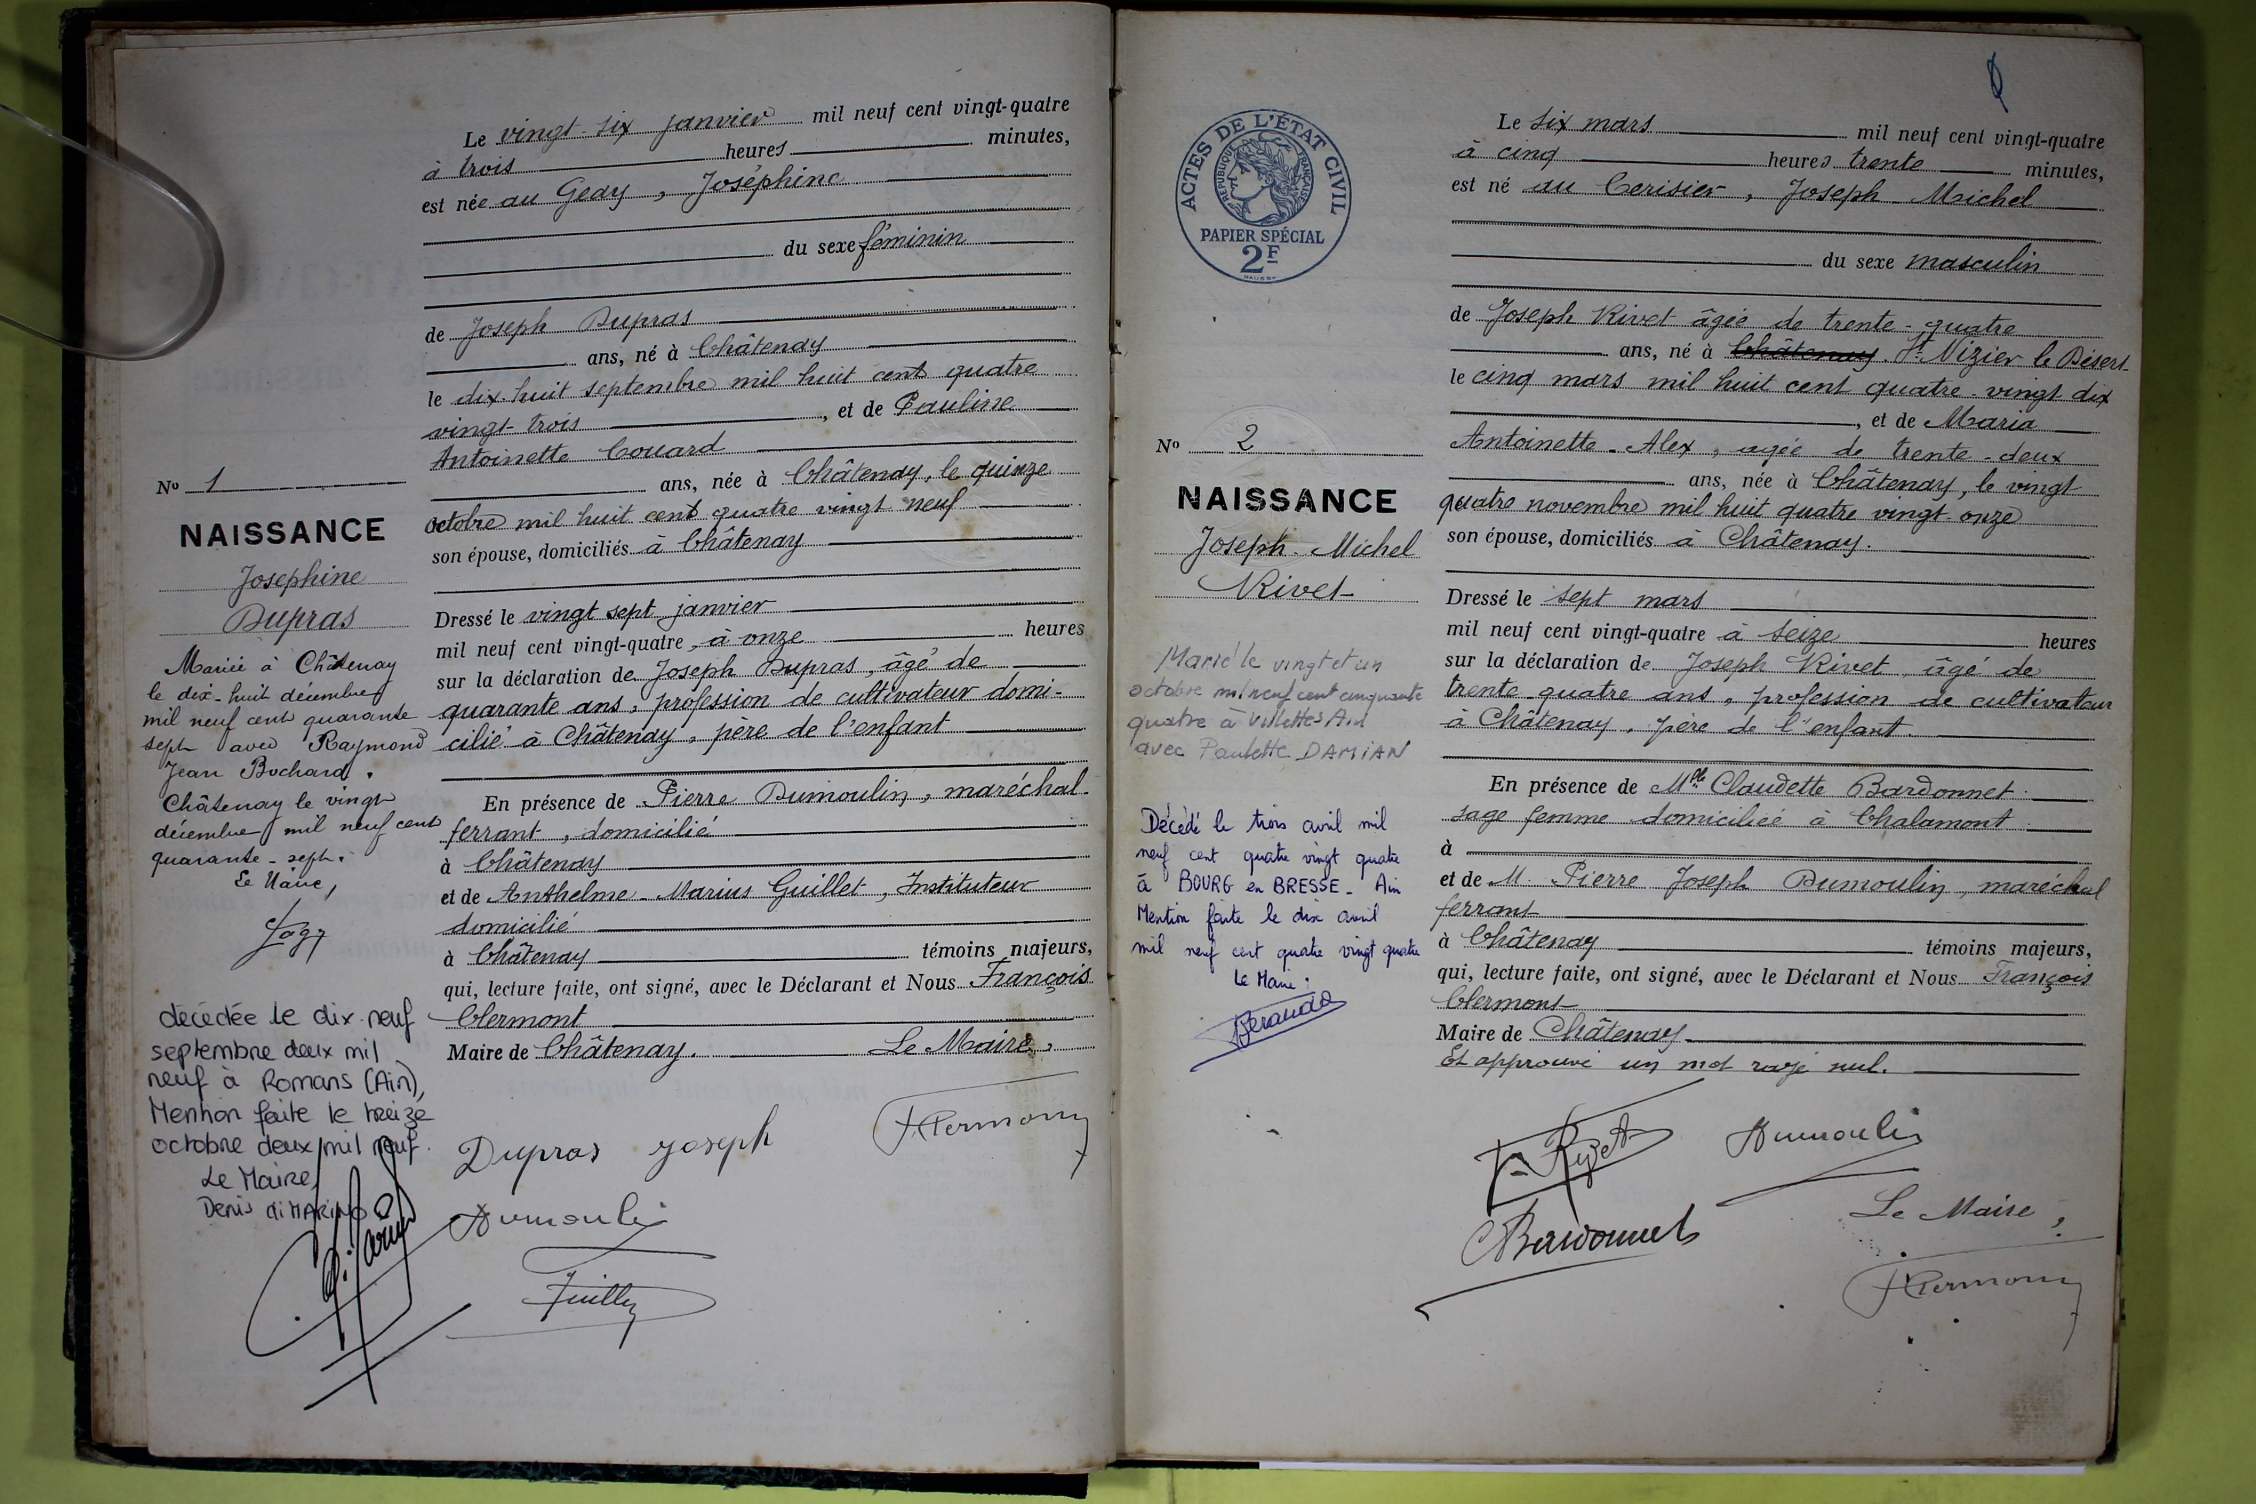 Le vingt-six janvier mil neuf cent vingt-quatre
à trois heures minutes,
est née au Geay, Joséphine
du sexe féminin
de Joseph Dupras
ans, né à Châtenay
le dix-huit septembre mil huit cent quatre
vingt-trois, et de Pauline
Antoinette Couard
ans, née à Châtenay, le quinze
octobre mil huit cent quatre vingt neuf
son épouse, domiciliés à Châtenay
Dressé le vingt sept janvier
mil neuf cent vingt-quatre, à onze heures
sur la déclaration de Joseph Dupras, âgé de
quarante ans, profession de cultivateur domi-
cilié à Châtenay, père de l'enfant
En présence de Pierre Dumoulin, maréchal-
ferrant, domicilié
à Châtenay
et de Anthelme-Marius Guillet, Instituteur
domicilié
à Châtenay témoins majeurs,
qui, lecture faite, ont signé, avec le Déclarant et Nous François
Clermont
Maire de Châtenay. Le Maire,
Dupras Joseph
FClermont
Dumoulin
No 1
NAISSANCE
Josephine
Dupras
Mariée à Châtenay
le dix-huit décembre
mil neuf cent quarante
sept avec Raymond
Jean Bochard.
Châtenay le vingt
décembre mil neuf cent
quarante-sept.
Le Maire,
décédée le dix-neuf
septembre deux mil
neuf à Romans (Ain),
Mention faite le treize
octobre deux mil neuf.
Le Maire,
Denis di MARINO
ACTES DE L'ÉTAT CIVIL
RÉPUBLIQUE FRANÇAISE
PAPIER SPÉCIAL
2F
No 2
NAISSANCE
Joseph-Michel
Rivet
Marié le vingt et un
octobre mil neuf cent cinquante
quatre à Villettes Ain
avec Paulette DAMIAN
Décédé le trois avril mil
neuf cent quatre vingt quatre
à BOURG en BRESSE - Ain
Mention faite le dix avril
mil neuf cent quatre vingt quatre
Le Maire:
Le six mars mil neuf cent vingt-quatre
à cinq heures trente minutes,
est né au Cerisier, Joseph-Michel
du sexe masculin
de Joseph Rivet âgée de trente-quatre
ans, né à Châtenay. St Nizier le Désert
le cinq mars mil huit cent quatre-vingt dix
, et de Maria
Antoinette-Alex, agée de trente-deux
ans, née à Châtenay, le vingt
quatre novembre mil huit quatre vingt-onze
son épouse, domiciliés à Châtenay.
Dressé le sept mars
mil neuf cent vingt-quatre à seize heures
sur la déclaration de Joseph Rivet, âgé de
trente-quatre ans, profession de cultivateur
à Châtenay, père de l'enfant.
En présence de Mlle Claudette Bardonnet
sage femme domiciliée à Chalamont
à
et de M. Pierre Joseph Dumoulin, maréchal
ferrant
à Châtenay témoins majeurs,
qui, lecture faite, ont signé, avec le Déclarant et Nous François
Clermont
Maire de Châtenay
Et approuvé un mot rayé nul.
Rivet
Dumoulin
CBardonnet
Le Maire,
FClermont